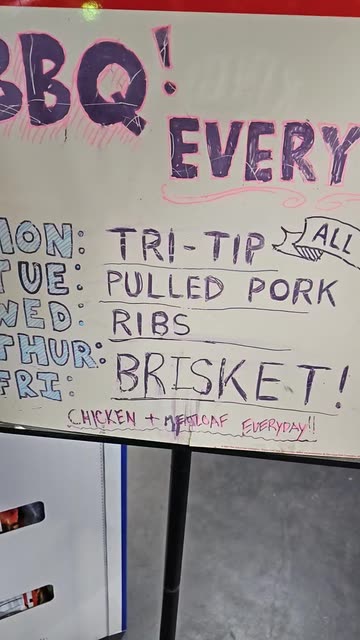 BBQ!
EVERY
MON: TRI-TIP ALL
TUE: PULLED PORK
WED: RIBS
THUR: BRISKET!
FRI:
CHICKEN + MEATLOAF EVERYDAY!!